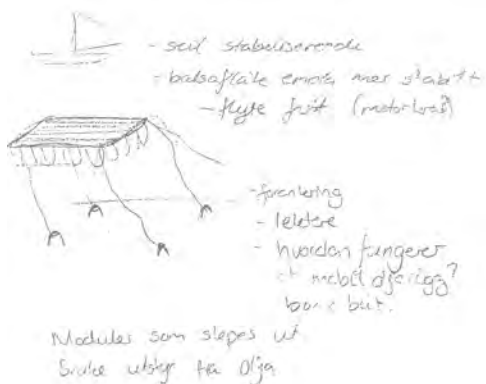 - seil stabiliserende
- balsaflåte enda mer stabilt
- flyte fritt (motorløs)
- forankring
- lektere
- hvordan fungerer
et mobil oljerigg?
bare båt.
Moduler som slepes ut
Bruke utstyr fra olja